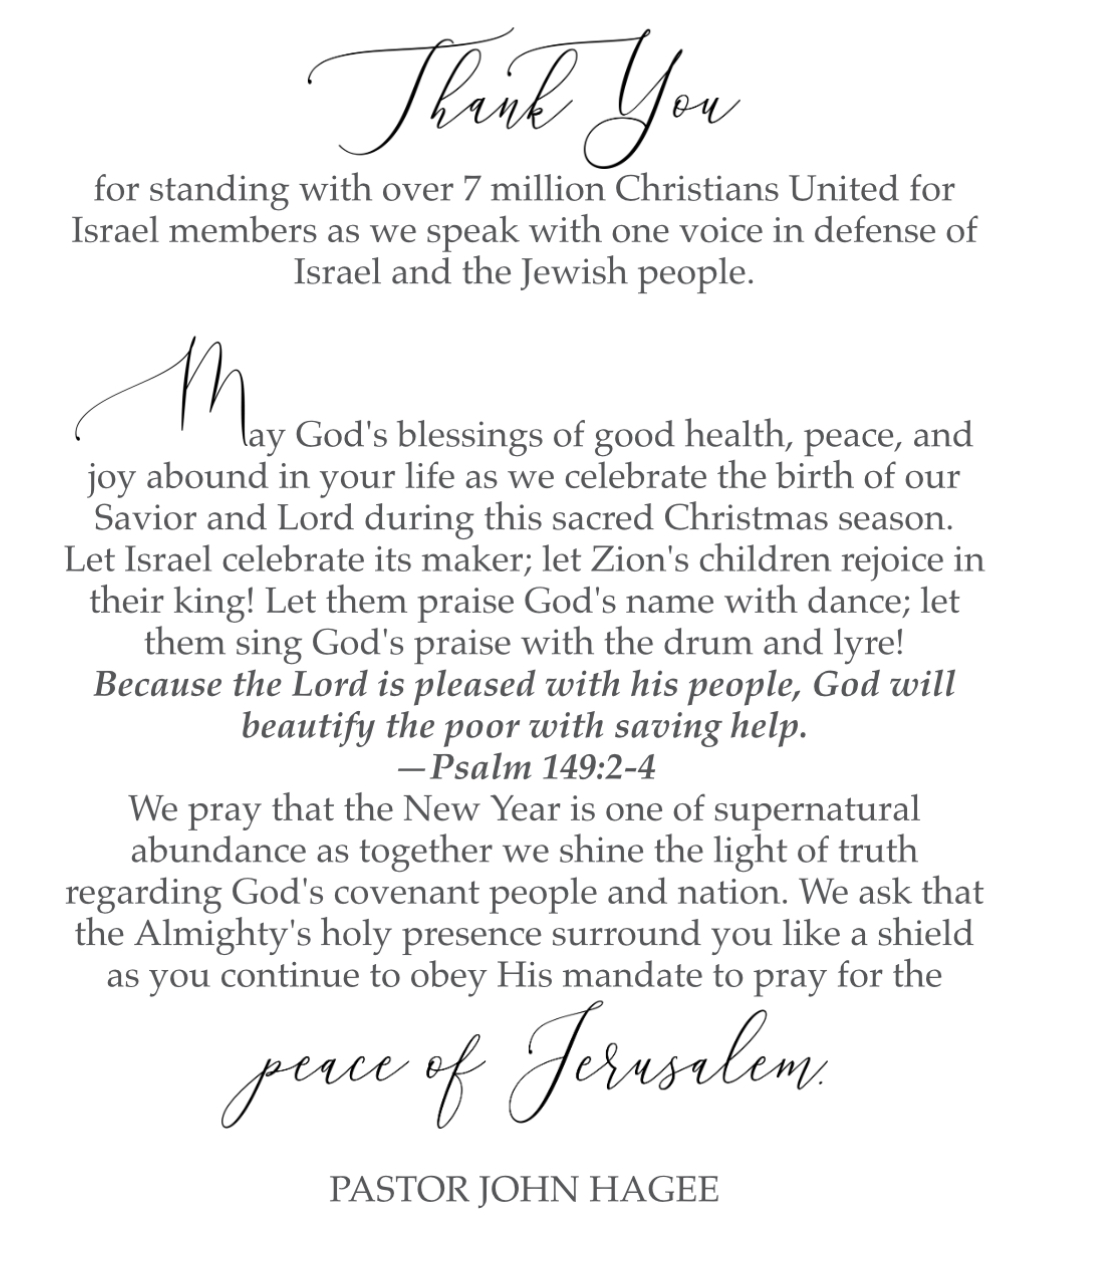 Thank You
for standing with over 7 million Christians United for
Israel members as we speak with one voice in defense of
Israel and the Jewish people.
May God's blessings of good health, peace, and
joy abound in your life as we celebrate the birth of our
Savior and Lord during this sacred Christmas season.
Let Israel celebrate its maker; let Zion's children rejoice in
their king! Let them praise God's name with dance; let
them sing God's praise with the drum and lyre!
Because the Lord is pleased with his people, God will
beautify the poor with saving help.
—Psalm 149:2-4
We pray that the New Year is one of supernatural
abundance as together we shine the light of truth
regarding God's covenant people and nation. We ask that
the Almighty's holy presence surround you like a shield
as you continue to obey His mandate to pray for the
peace of Jerusalem.
PASTOR JOHN HAGEE